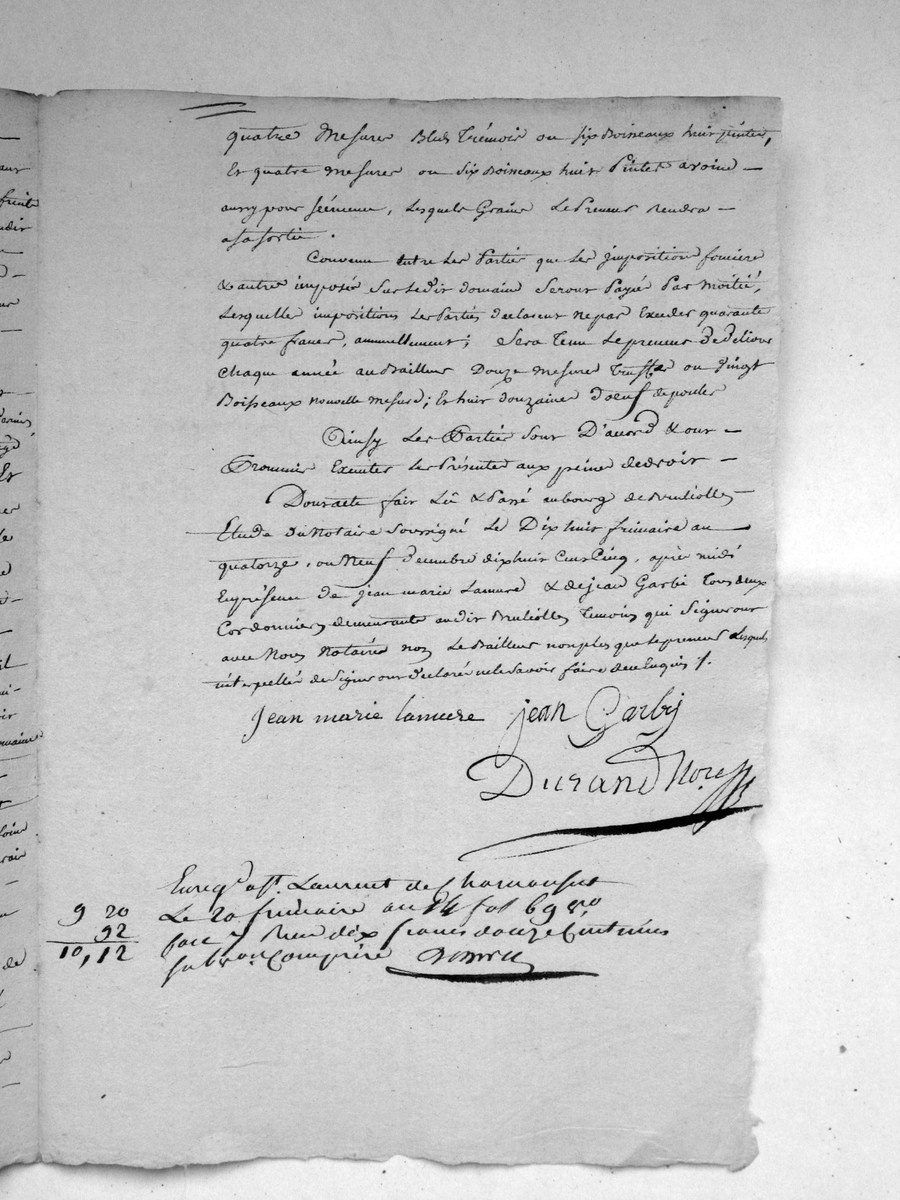 quatre Mesures Bled Trémois ou six Boisseaux huit pintes,
Et quatre mesures ou six Boisseaux huit Pintes avoine
aussy pour séemence, Lesquels Grains Le Preneur Rendra
asasortie.
Convenu entre Les Parties que Les jmposition fonciere
& autre imposés sur Ledit domaine seront Payé Par Moitié,
Lesquelle impositions Les Parties declarent ne pas Exceder quarante
quatre francs, annuellement; Sera Tenu Le preneur De Délivrer
chaque année au Bailleur Douze Mesures Truffes ou vingt
Boisseaux nouvelle Mesure; Et huit douzaines d'oeufs de poules
Ainsy Les Parties sont D'accord & ont
Promis Executer Les Présentes aux peines de droit
Dont acte fait Lû & Passé au bourg de Brulioles
Etude du Notaire soussigné Le Dix huit frimaire an
quatorze, ou Neuf decembre dix huit Cent Cinq, après midi
En présence de jean marie Lamure & de jean Garbi Tous deux
Cordonniers demeurants audit Brulioles Temoins qui Signeront
avec Nous Notaires non Le Bailleur non plus que Le preneur Lesquels
interpellés de Signer ont declaré ne le Savoir faire de ce Enquis /.
Jean marie lamure jean Garbij
Durand Nore
Enregé a St. Laurent de Chamousset
Le 20 frimaire an 14 fol 69 vo.
9 20
92
10,12
case 7 Reçu dix francs douze Centimes
subvon Comprise